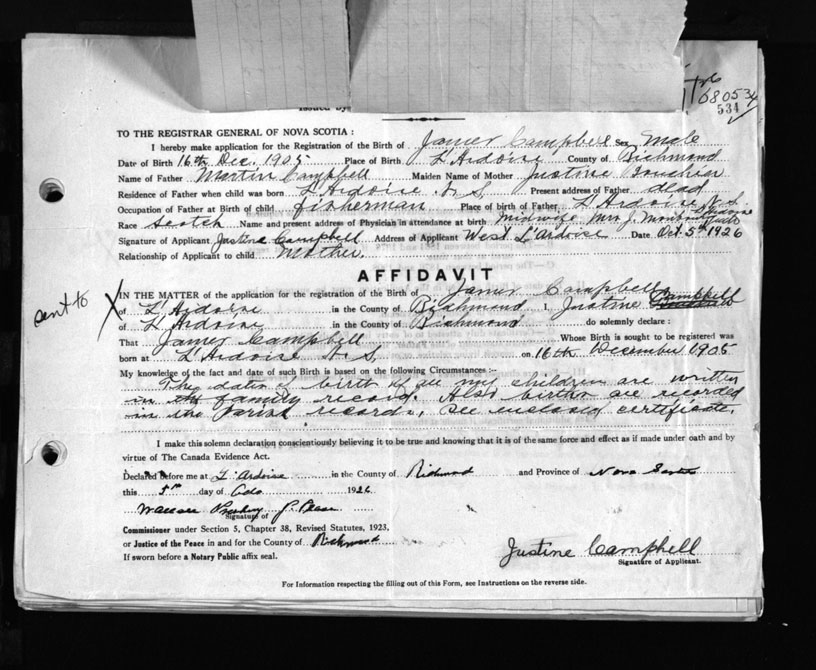 68053
534
Issued by
TO THE REGISTRAR GENERAL OF NOVA SCOTIA :
I hereby make application for the Registration of the Birth of James Campbell Sex Male
Date of Birth 16th Dec. 1905 Place of Birth L'Ardoise County of Richmond
Name of Father Martin Campbell Maiden Name of Mother Justine Boucher
Residence of Father when child was born L'Ardoise N.S. Present address of Father dead
Occupation of Father at Birth of child fisherman Place of birth of Father L'Ardoise N.S.
Race Scotch Name and present address of Physician in attendance at birth Midwife Mrs J.
Signature of Applicant Justine Campbell Address of Applicant West L'Ardoise Date Oct. 5th 1926
Relationship of Applicant to child Mother.
AFFIDAVIT
sent to
IN THE MATTER of the application for the registration of the Birth of James Campbell
of L'Ardoise in the County of Richmond I, Justine Campbell
of L'Ardoise in the County of Richmond do solemnly declare :
That James Campbell Whose Birth is sought to be registered was
born at L'Ardoise N.S. on 16th December 1905
My knowledge of the fact and date of such Birth is based on the following Circumstances :-
The dates of birth of all my children are written
in the family record. Also births are recorded
in the Parish records, see enclosed certificate.
I make this solemn declaration conscientiously believing it to be true and knowing that it is of the same force and effect as if made under oath and by
virtue of The Canada Evidence Act.
Declared before me at L'Ardoise in the County of Richmond and Province of Nova Scotia
this 5th day of Oct 1926
Signature of
Commissioner under Section 5, Chapter 38, Revised Statutes, 1923,
or Justice of the Peace in and for the County of Richmond
If sworn before a Notary Public affix seal.
Justine Campbell
Signature of Applicant.
For Information respecting the filling out of this Form, see Instructions on the reverse side.